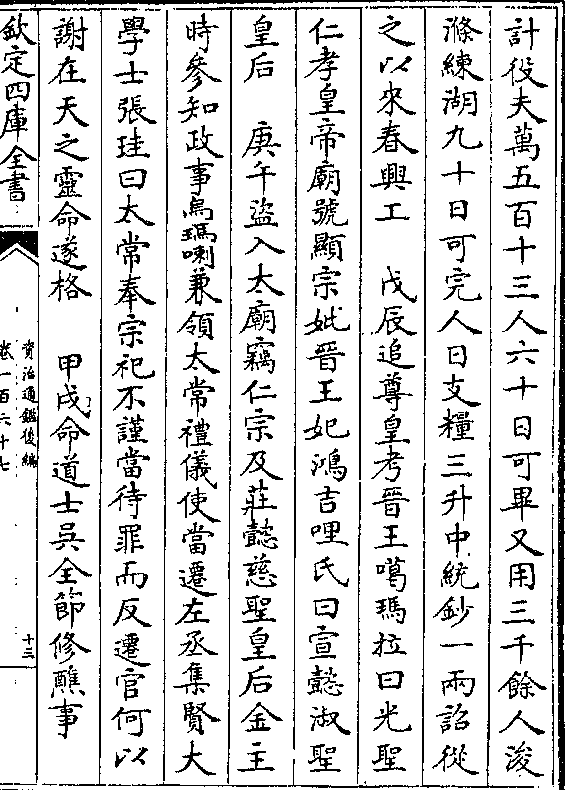 計役夫萬五百十三人六十日可畢又用三千餘人浚
滌練湖九十日可完人日支糧三升中統鈔一兩詔從
之以來春興工　戊辰追尊皇考晉王噶瑪拉曰光聖
仁孝皇帝廟號顯宗妣晉王妃鴻吉哩氏曰宣懿淑聖
皇后　庚午盜入太廟竊仁宗及莊懿慈聖皇后金主
時參知政事烏瑪喇兼領太常禮儀使當遷左丞集賢大
學士張珪曰太常奉宗祀不謹當待罪而反遷官何以
謝在天之靈命遂格　甲戌命道士吳全節修醮事
欽定四庫全書
資治通鑑後編
卷一百六十七
十三